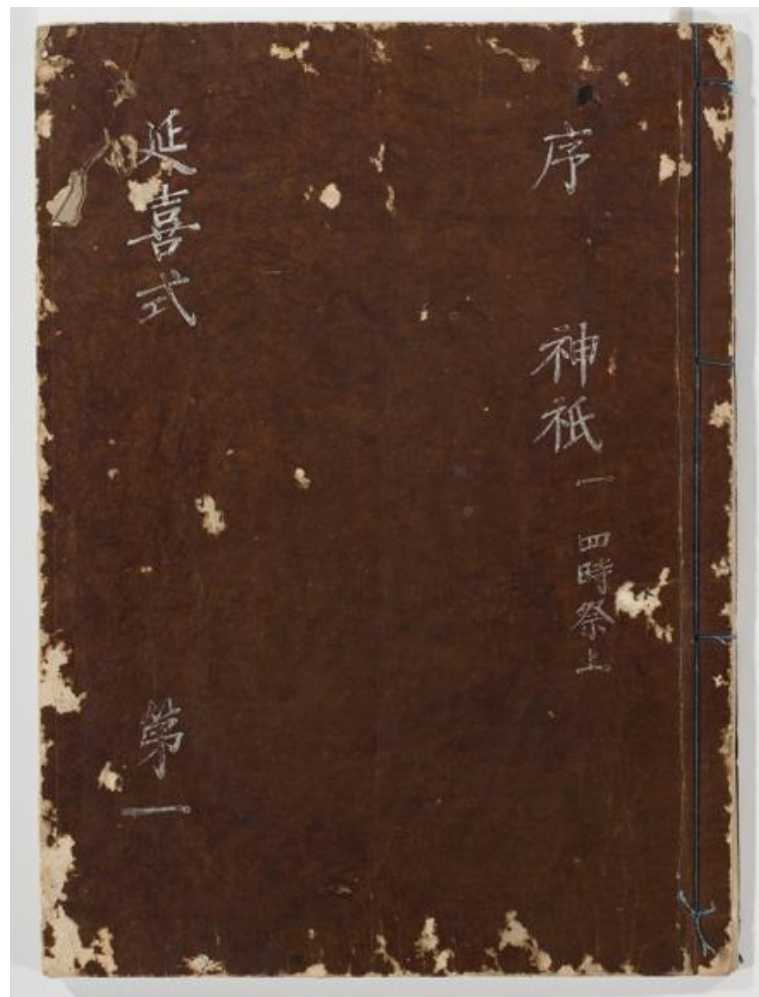 序 神祇一 四時祭上
延喜式 第一